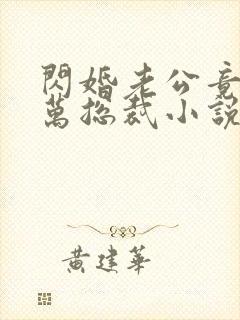 閃婚老公竟
萬總裁小說
黃建華